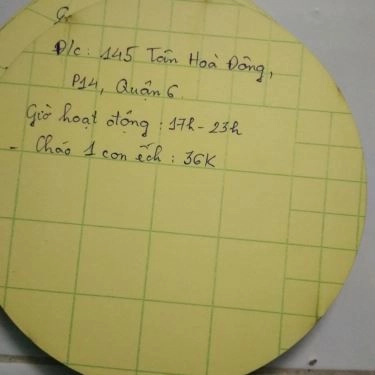 Đ/c: 145 Tân Hoà Đông,
P14, Quận 6.
Giờ hoạt động: 17h - 23h
- Cháo 1 con ếch: 36K